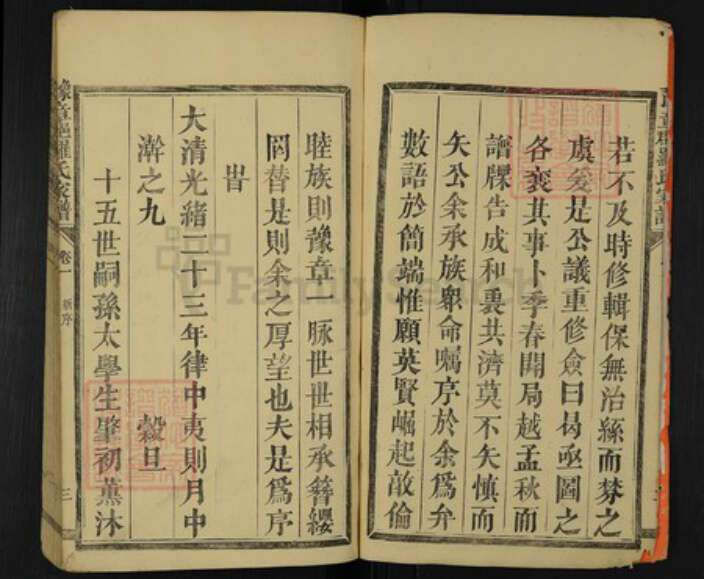 若不及時修輯保無治絲而棼之
虞爰是公議重修僉曰曷亟圖之
各襄其事卜季春開局越孟秋而
譜牒告成和衷共濟莫不矢慎而
矢公余承族眾命囑序於余為弁
數語於簡端惟願英賢崛起敵倫
睦族則豫章一脉世世相承簪纓
罔替是則余之厚望也夫是為序
旹
大清光緒二十三年律中夷則月中
澣之九 穀旦
十五世嗣孫太學生肇初薰沐
豫章郡羅氏家譜 卷一 新序 三
FamilySearch